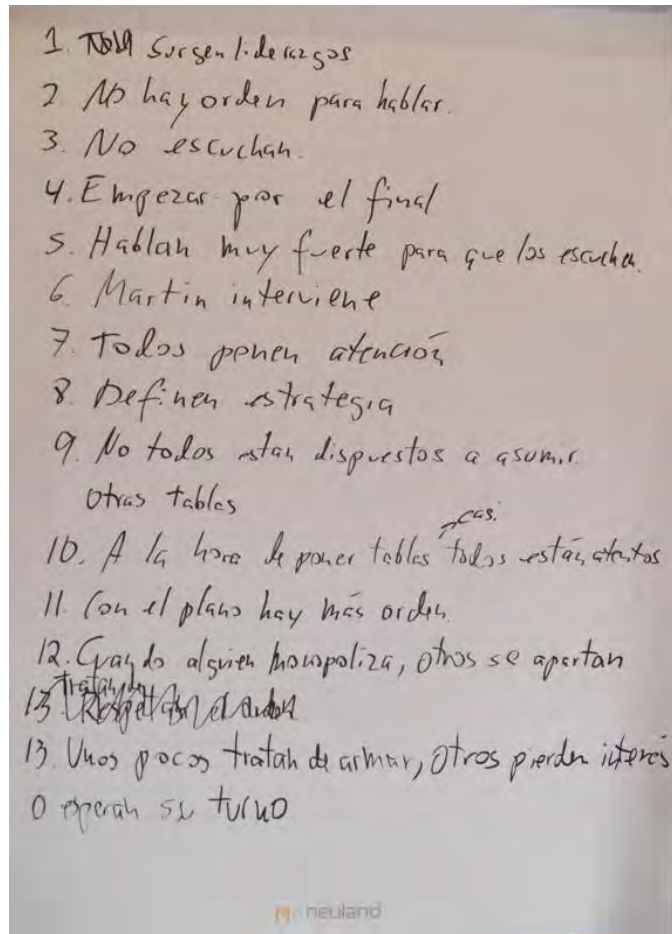 1. Surgen liderazgos
2 No hay orden para hablar.
3. No escuchan.
4. Empezar por el final
5. Hablan muy fuerte para que los escuchen.
6. Martin interviene
7. Todos ponen atención
8. Definen estrategia
9. No todos estan dispuestos a asumir
otras tablas
casi
10. A la hora de poner tablas todos están atentos
11. Con el plano hay más orden
12. Cuando alguien monopoliza, otros se apartan
13
13. Unos pocos tratan de armar, otros pierden interés
O esperan su turno
neuland